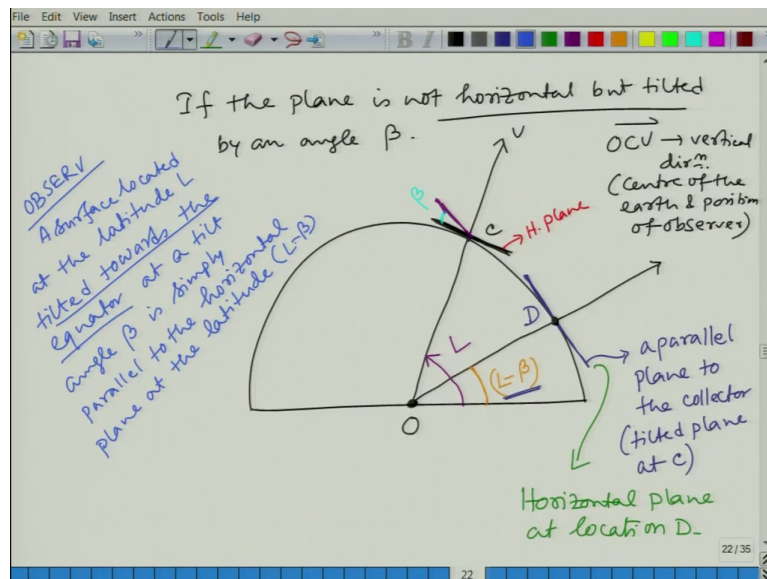 File Edit View Insert Actions Tools Help
B I
If the plane is not horizontal but tilted
by an angle β.
OCV → vertical
dirn
(Centre of the
earth & position
of observer)
OBSERV
A surface located
at the latitude L
tilted towards the
equator at a tilt
angle β is simply
parallel to the horizontal
plane at the latitude (L-β)
V
β
C
H. plane
D
L
(L-β)
O
a parallel
plane to
the collector
(tilted plane
at C)
Horizontal plane
at location D-
22/35
22